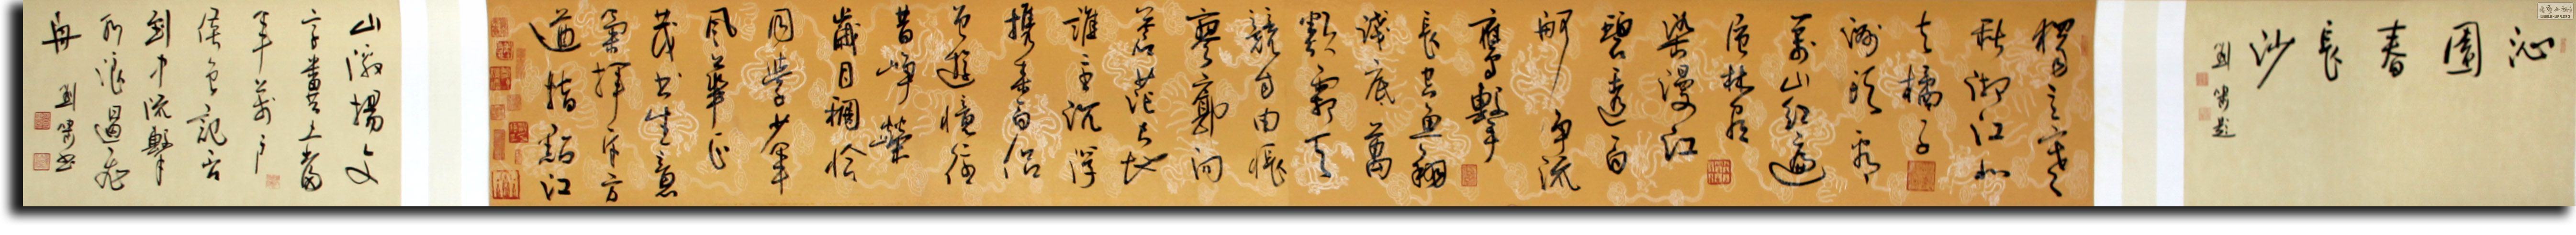 沁園春長沙
獨立寒
秋湘江北
去橘子
洲頭看
萬山紅遍
層林盡
染漫江
碧透百
舸爭流
鷹擊
長空魚翔
淺底萬
類霜天
競自由悵
寥廓問
蒼茫大地
誰主沉浮
攜來百侶
曾遊憶往
昔崢嶸
歲月稠恰
同學少年
風華正
茂書生意
氣揮斥方
遒指點江
山激揚文
字糞土當
年萬戶
侯曾記否
到中流擊
水浪遏飛
舟